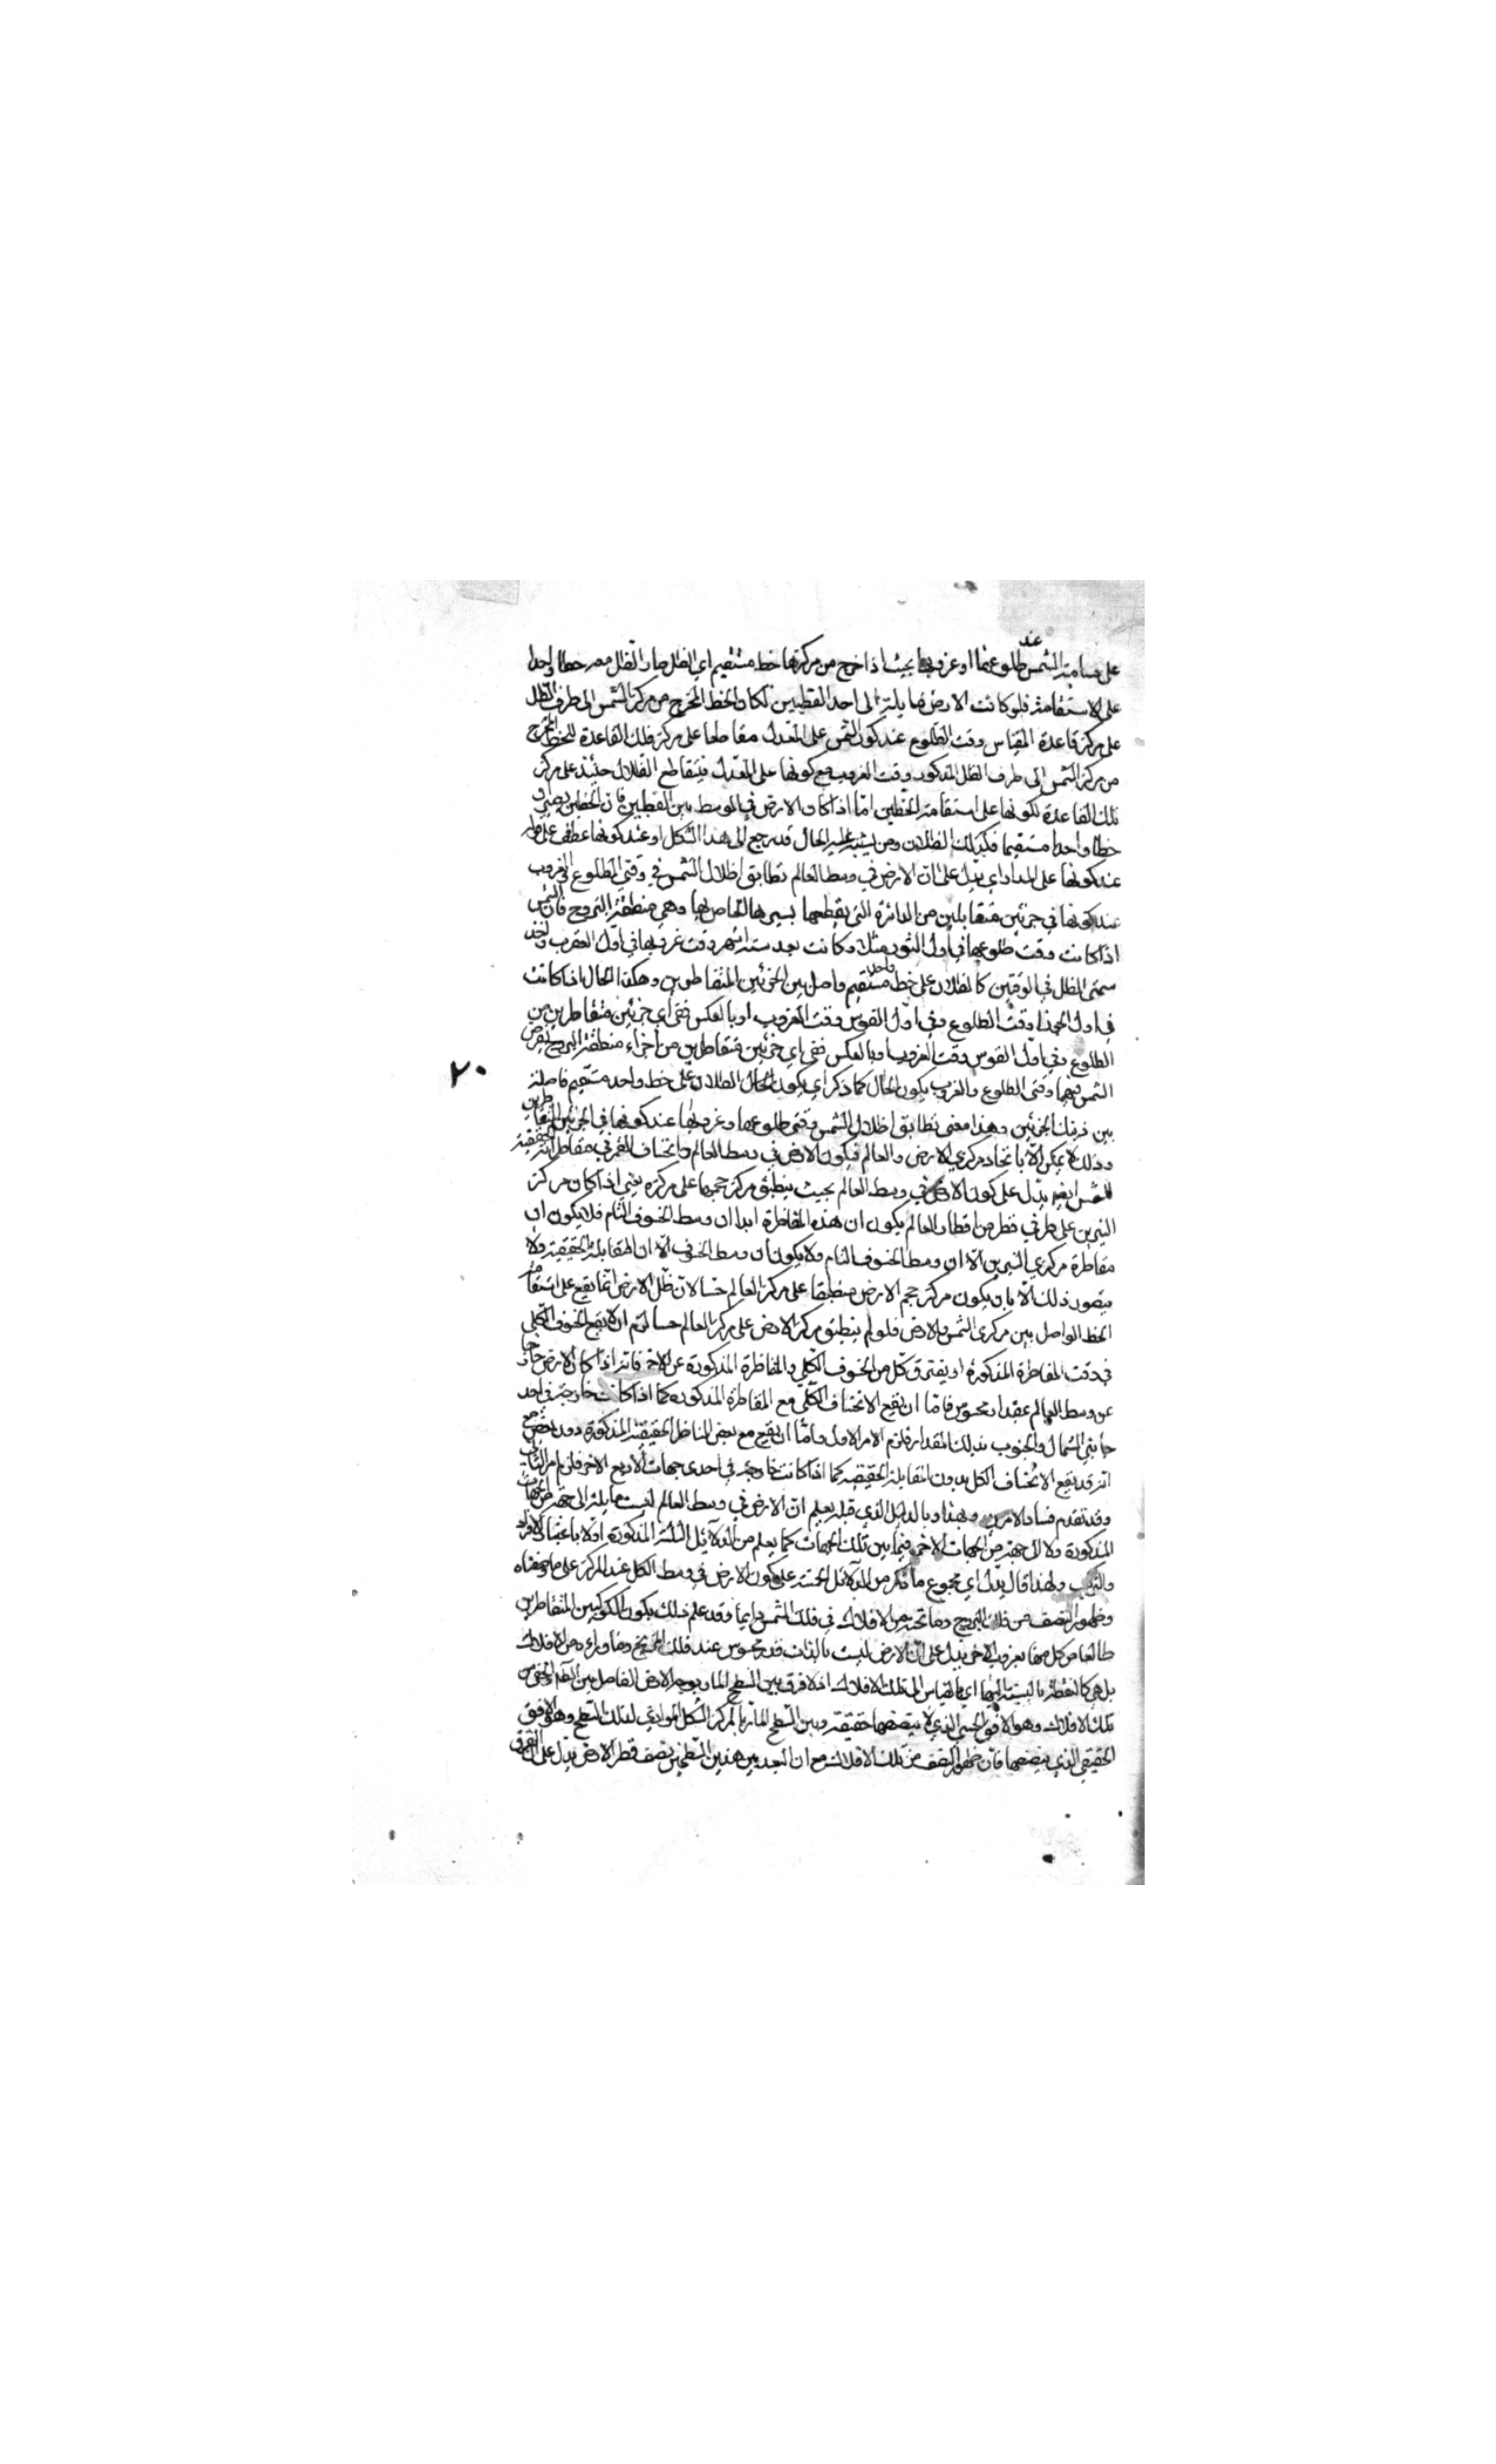 عند
على مسامتة الشمس طلوعها او غروبها بحيث اذا خرج من مركزها خط مستقيم الى الظل صار الظل معه خطا واحدا
على الاستقامة فلو كانت الارض مايلة الى احد القطبين لكان الخط المخرج من مركز الشمس الى طرف الظل
على مركز قاعدة المقياس وقت الطلوع عند كون الشمس على المعدل مقاطعا على مركز تلك القاعدة للخط المخرج
من مركز الشمس الى طرف الظل المذكور وقت الغروب مع كونها على المعدل فيتقاطع الظلان حينئذ على مركز
تلك القاعدة لكونها على استقامة الخطين امّا اذا كان الارض في الوسط بين القطبين فان الخطين يصير
خطا واحدا مستقيما فكذلك الظلان ومن يشتبه عليه الحال فليرجع الى هذا الشكل او عند كونها عطف على قوله
عند كونها على المدار اي يدل على انّ الارض في وسط العالم تطابق اظلال الشمس في وقتي الطلوع والغروب
عند كونها في جزئين متقابلين من الدائرة التي يقطعها بسيرها الخاص بها وهي منطقة البروج فان الشمس
اذا كانت وقت طلوعها في اول الثور مثلا وكانت بعد ستة اشهر وقت غروبها في اول العقرب
سمتى الظل في الوقتين كان الظلان على خط واحد مستقيم واصل بين الجزئين المتقاطرين وهكذا الحال اذا كانت
في اول الجوزا وقت الطلوع وفي اول القوس وقت الغروب او بالعكس ففي اي جزئين متقاطرين من
الطلوع وفي اول القوس وقت الغروب او بالعكس ففي اي جزئين متقاطرين من اجزاء منطقة البروج يفرض
٢٠
الشمس فيهما وقتى الطلوع والغروب يكون الحال كما ذكر اي يكون الظلان على خط واحد مستقيم فاصلة
بين ذينك الجزئين وهذا معنى تطابق اظلال الشمس وقتى طلوعها وغروبها عند كونها في الجزئين المتقاطرين
وذلك لا يمكن الا باتحاد مركزي الارض والعالم فيكون الارض في وسط العالم وانخساف القمر في مقاطراته الحقيقية
للشمس ايضا يدل على كون الارض في وسط العالم بحيث ينطبق مركز حجمها على مركزه يعني اذا كان مركز
النيرين على طرفي قطر من اقطار العالم يكون ان هذه المقاطرة ابدا ان وسط الخسوف التام فلا يكون ان
مقاطرة مركزي النيرين الا ان وسط الخسوف التام ولا يكون ان وسط الخسوف الا ان المقابلة الحقيقية ولا
يتصور ذلك الا بان يكون مركز حجم الارض منطبقا على مركز العالم حسا لان ظل الارض انما يقع على استقامة
الخط الواصل بين مركزى الشمس والارض فلو لم ينطبق مركز الارض على مركز العالم حسا لزم ان لا يقع الخسوف الكلى
في وقت المقاطرة المذكورة او يفترق كل من الخسوف الكلي والمقاطرة المذكورة عن الاخر فانه اذا كان الارض خارجا
عن وسط العالم بمقدار محسوس فامّا ان يقع الانخساف الكلّى مع المقاطرة المذكورة كما اذا كانت خارجة في احد
جانبي الشمال والجنوب بذلك المقدار فلزم الامر الاول وامّا ان يقع مع بعض المقاطر الحقيقية المذكورة دون بعض مع
انه قد يقع الانخساف الكل بدون المقابلة الحقيقية كما اذا كانت خارجة في احدى جهات الاربع الاخر فلزم امر الثاني
وقد تقدم فساد الامرين وبهذا وبالدليل الذي قبله يعلم انّ الارض في وسط العالم ليست مايلة الى جهة من الجهات
المذكورة ولا الى جهة من الجهات الاخر فيما بين تلك الجهات كما يعلم من الدلائل الثلثة المذكورة اولا باعتبار الافراد
والتركيب ولهذا قال يدل اي مجموع ما ذكر من الدلائل الخمسة على كون الارض في وسط الكل عند المركز على ما وصفناه
وظهور النصف من فلك البروج وما تحته من الافلاك في فلك الشمس دايما وقد علم ذلك بكون الكوكبين المتقاطرين
طالعا من كل منهما بغروب الاخر يدل على ان الارض ليست بالذات قدر محسوس عند فلك المريخ وما وراءه من الافلاك
بل هي كالنقطة بالنسبة اليها اي بالقياس الى تلك الافلاك اذ لا فرق بين السطح المار بوجه الارض الفاصل بين الظاهر والخفي من
تلك الافلاك وهو الافق الحسي الذي لا ينصفها حقيقة وبين السطح المار بالمركز الموازي لذلك السطح وهو الافق
الحقيقي الذي ينصفها فان ظهور النصف من تلك الافلاك مع ان البعد بين هذين السطحين نصف قطر الارض يدل على ان الفرق